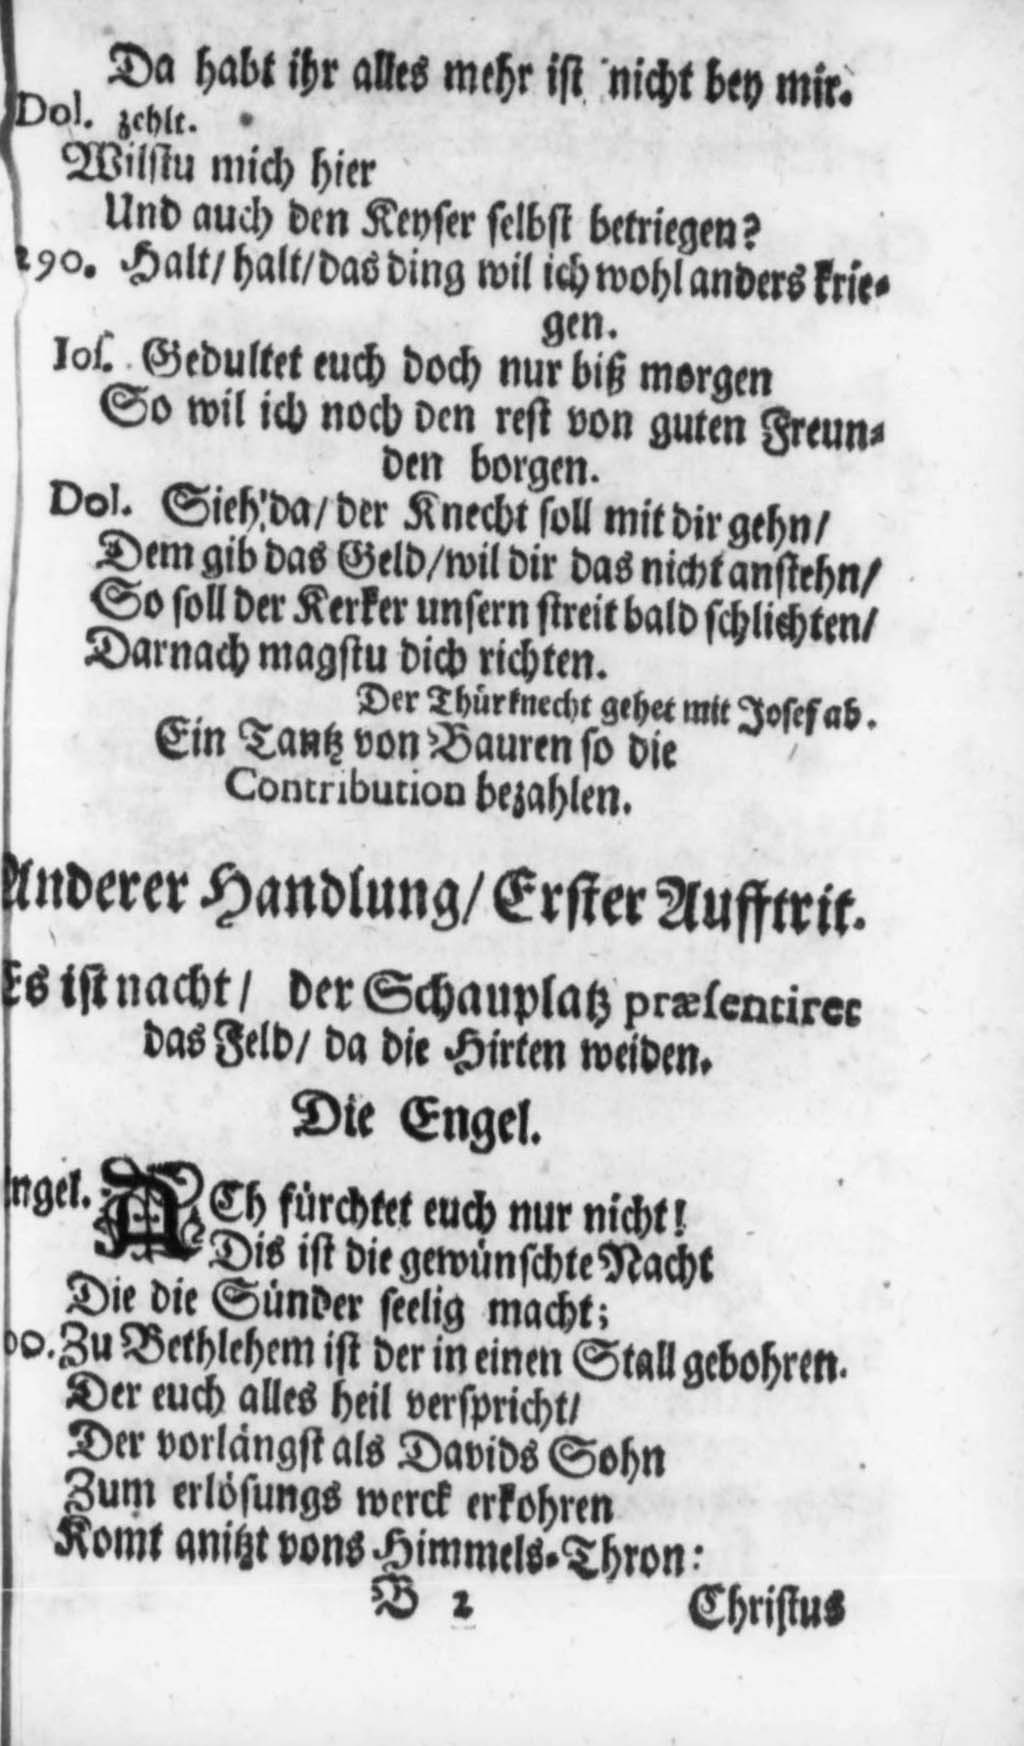 Da habt ihr alles mehr ist nicht bey mir.
Dol. zehlt.
Wilstu mich hier
Und auch den Keyser selbst betriegen?
290. Halt/ halt/ das ding wil ich wohl anders krie-
gen.
Ios. Gedultet euch doch nur biß morgen
So wil ich noch den rest von guten Freun-
den borgen.
Dol. Sieh! da/ der Knecht soll mit dir gehn/
Dem gib das Geld/ wil dir das nicht anstehn/
So soll der Kerker unsern streit bald schlichten/
Darnach magstu dich richten.
Der Thürknecht gehet mit Josef ab.
Ein Tantz von Bauren so die
Contribution bezahlen.
Anderer Handlung/ Erster Aufftrit.
Es ist nacht/ der Schauplatz præsentiret
das Feld/ da die Hirten weiden.
Die Engel.
ngel. ACh fürchtet euch nur nicht!
Dis ist die gewünschte Nacht
Die die Sünder seelig macht;
00. Zu Bethlehem ist der in einen Stall gebohren.
Der euch alles heil verspricht/
Der vorlängst als Davids Sohn
Zum erlösungs werck erkohren
Komt anitzt vons Himmels-Thron:
B 2 Christus